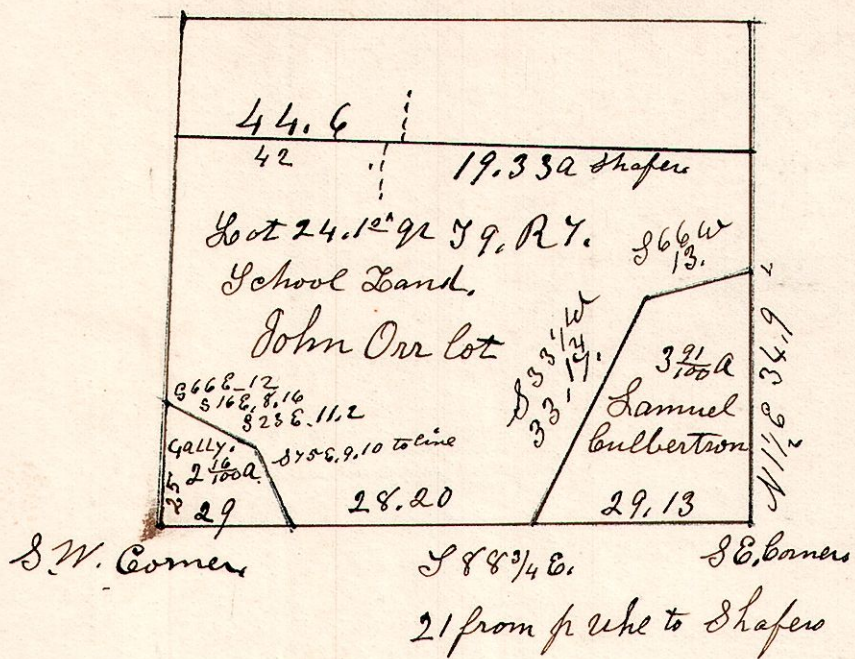 44.6
42
19.33a Shafers
Lot 24. 1st qr T9, R7.
School Land.
S66W
13.
John Orr lot
S 33 1/4 W
33.17.
N 1 1/2 E 34.9
3 91/100 A
Samuel
Culbertson
S66E-12
S16E, 8.16
S23E-11.2
S75E, 9.10 to line
Gally.
2 16/100 A.
25
29
28.20
29.13
S.W. Corner
S 88 3/4 E.
S.E. Corners
21 from to Shafers